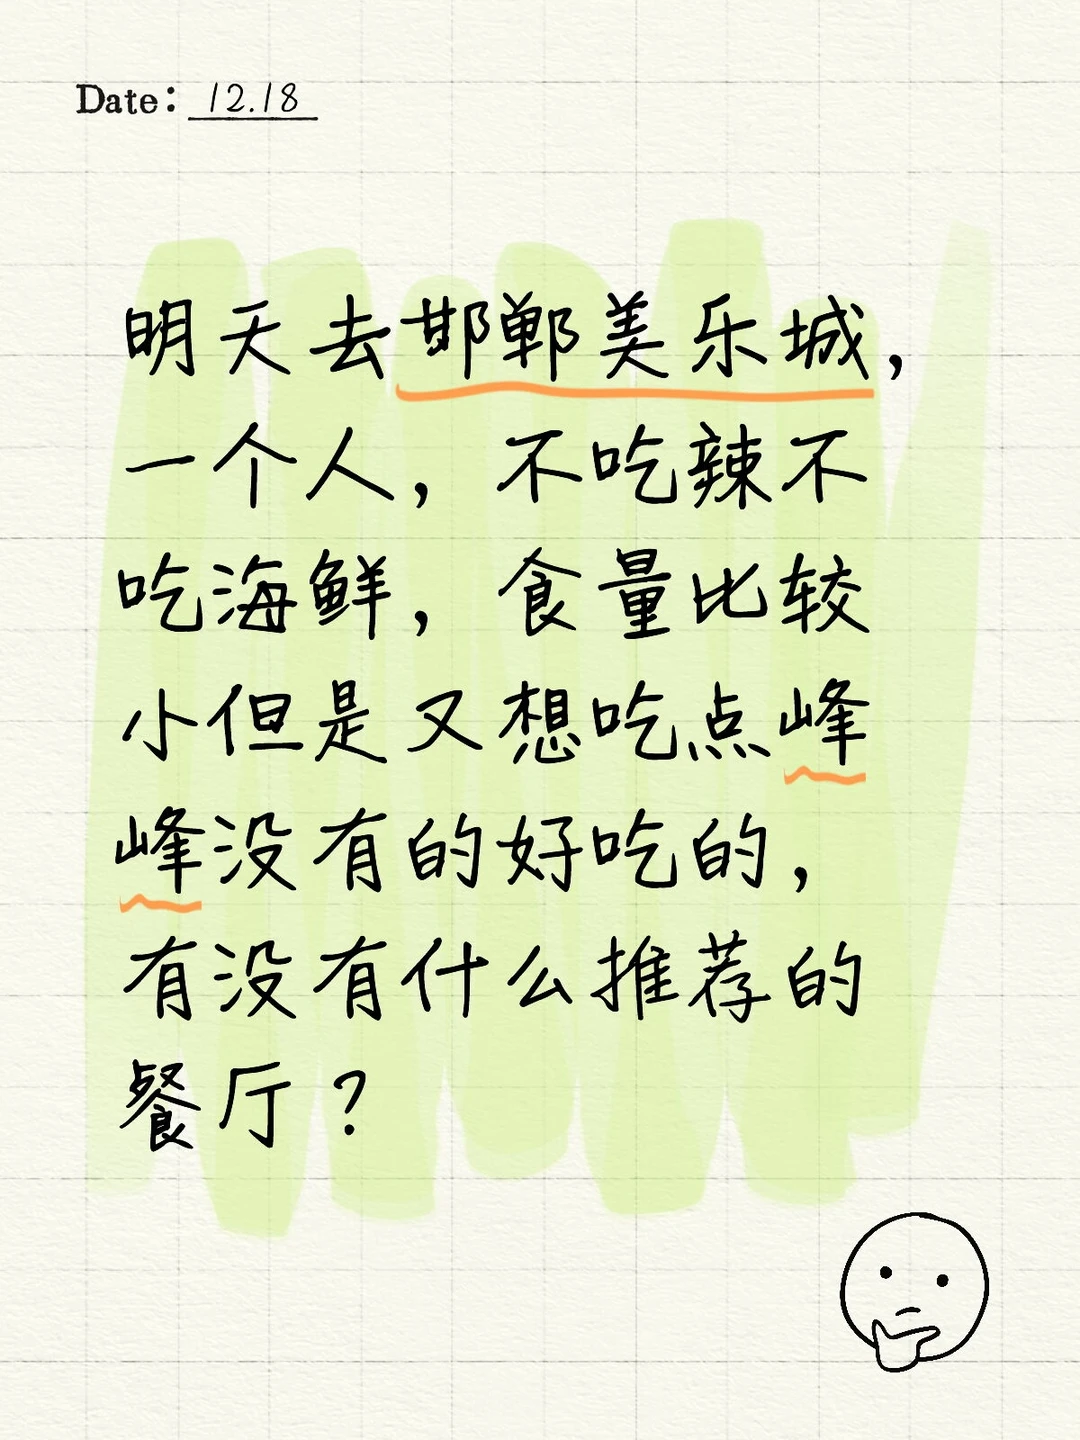 Date: 12.18
明天去邯郸美乐城,
一个人,不吃辣不
吃海鲜,食量比较
小但是又想吃点峰
峰没有的好吃的,
有没有什么推荐的
餐厅?